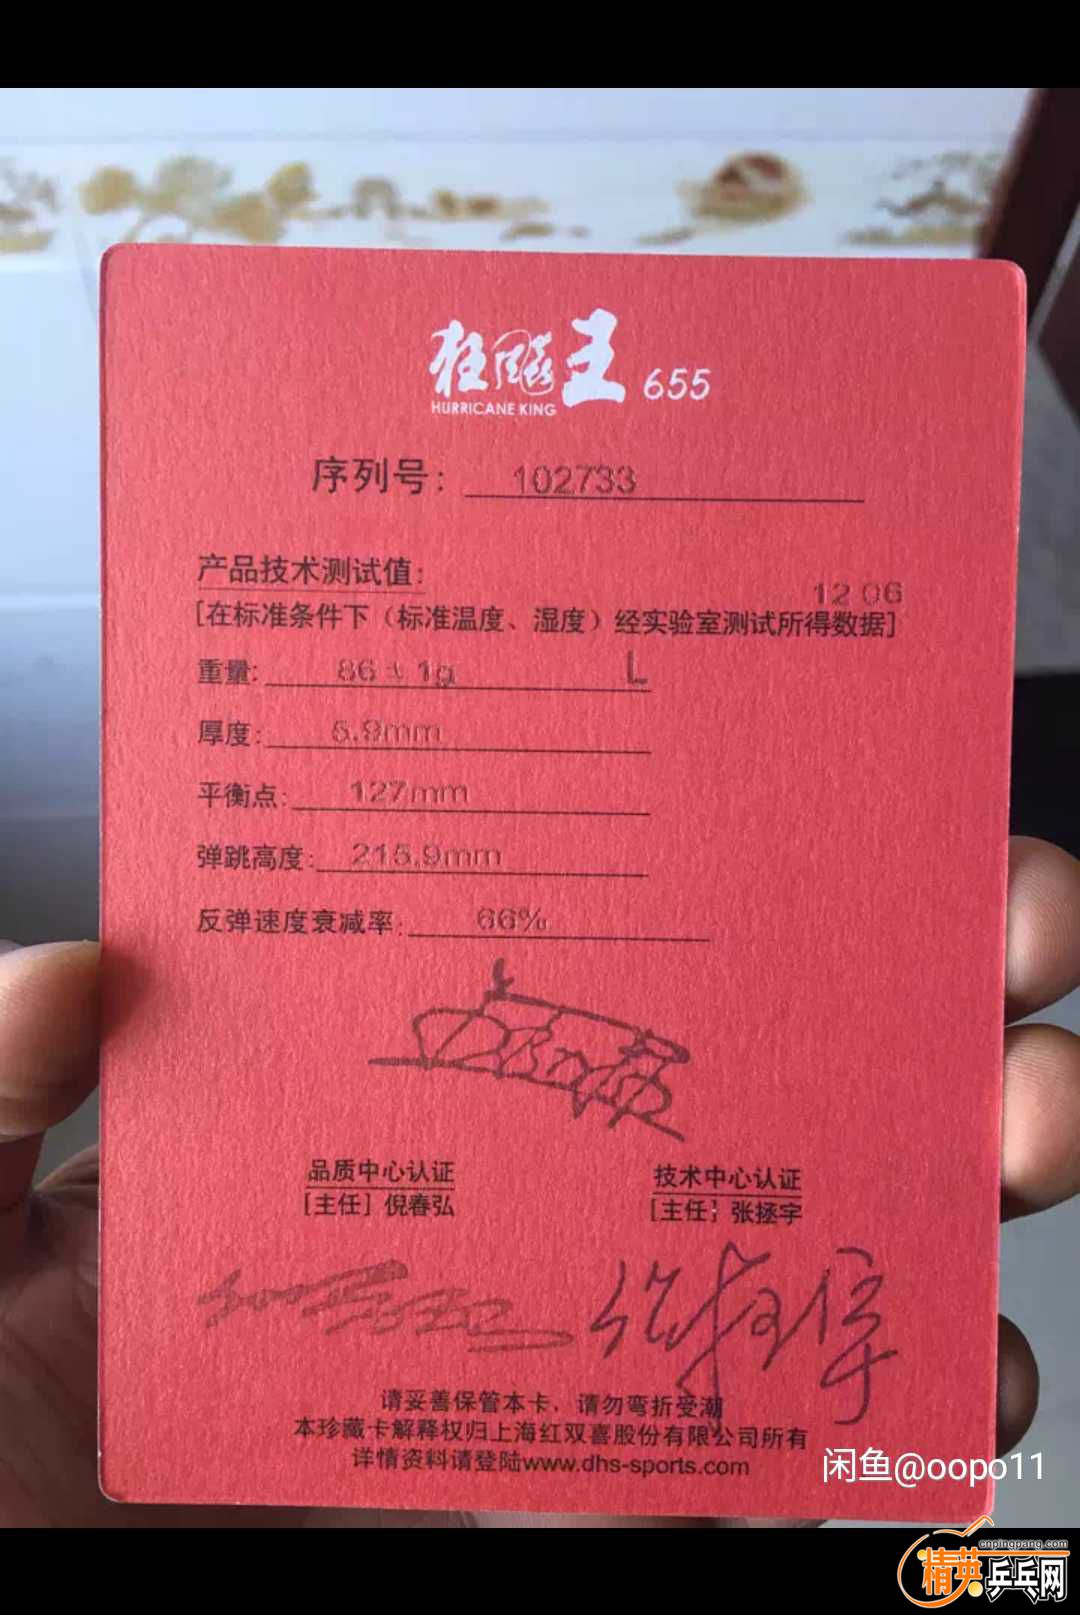 狂飚王 655
HURRICANE KING
序列号: 102733
产品技术测试值:
12 06
[在标准条件下（标准温度、湿度）经实验室测试所得数据]
重量: 86±1g L
厚度: 5.9mm
平衡点: 127mm
弹跳高度: 215.9mm
反弹速度衰减率: 66%
品质中心认证
[主任] 倪春弘
技术中心认证
[主任] 张拯宇
请妥善保管本卡，请勿弯折受潮
本珍藏卡解释权归上海红双喜股份有限公司所有
详情资料请登陆www.dhs-sports.com
闲鱼@oopo11
cnpingpang.com
精英乒乓网